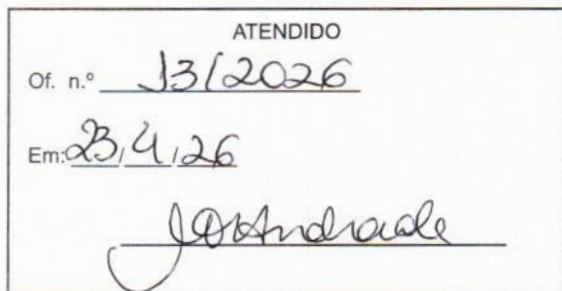 ATENDIDO
Of. n.º 13/2026
Em: 23/4/26
JDAndrade